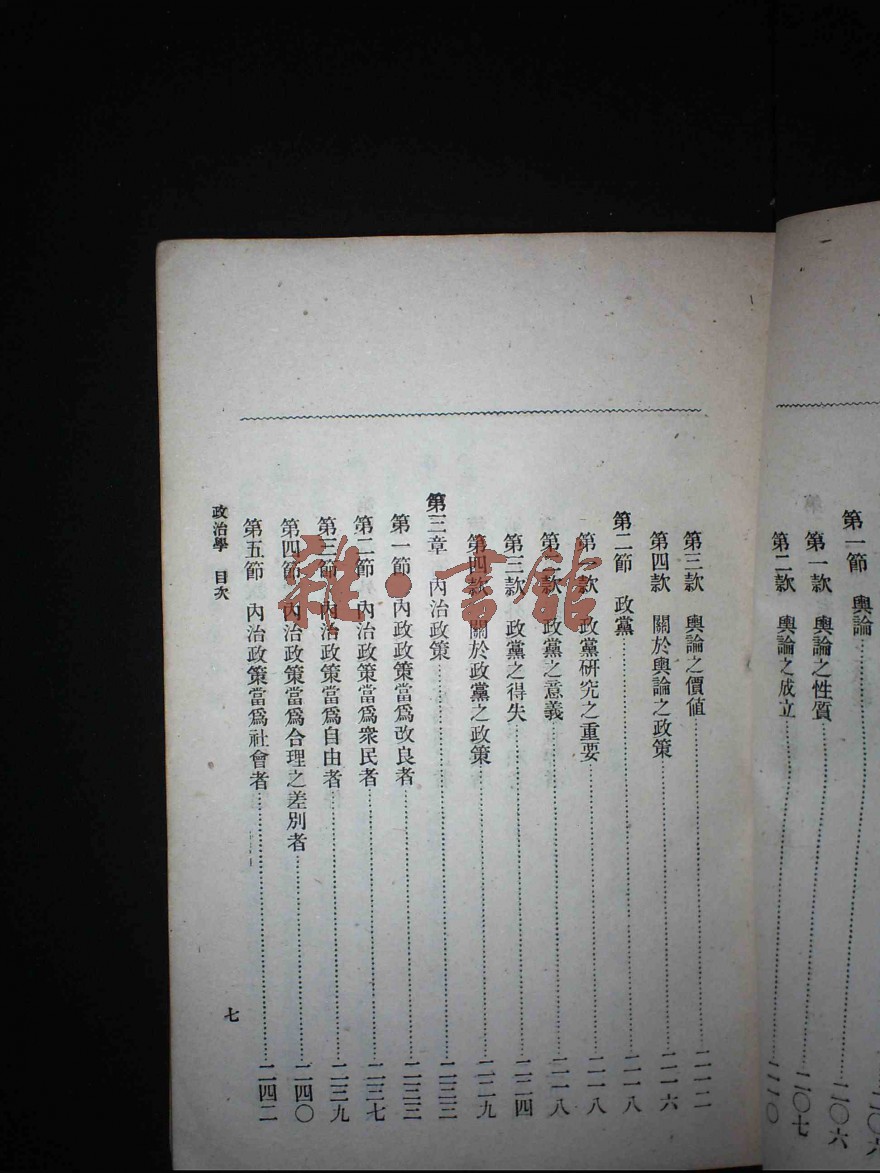 第一節 輿論……二〇六
第一款 輿論之性質……二〇七
第二款 輿論之成立……二一〇
第三款 輿論之價値……二一二
第四款 關於輿論之政策……二一六
第二節 政黨……二一八
第一款 政黨硏究之重要……二一八
第二款 政黨之意義……二一八
第三款 政黨之得失……二二四
第四款 關於政黨之政策……二二九
第三章 內治政策……二三三
第一節 內政政策當爲改良者……二三三
第二節 內治政策當爲衆民者……二三七
第三節 內治政策當爲自由者……二三九
第四節 內治政策當爲合理之差別者……二四〇
第五節 內治政策當爲社會者……二四二
政治學 目次
七
雜·書館